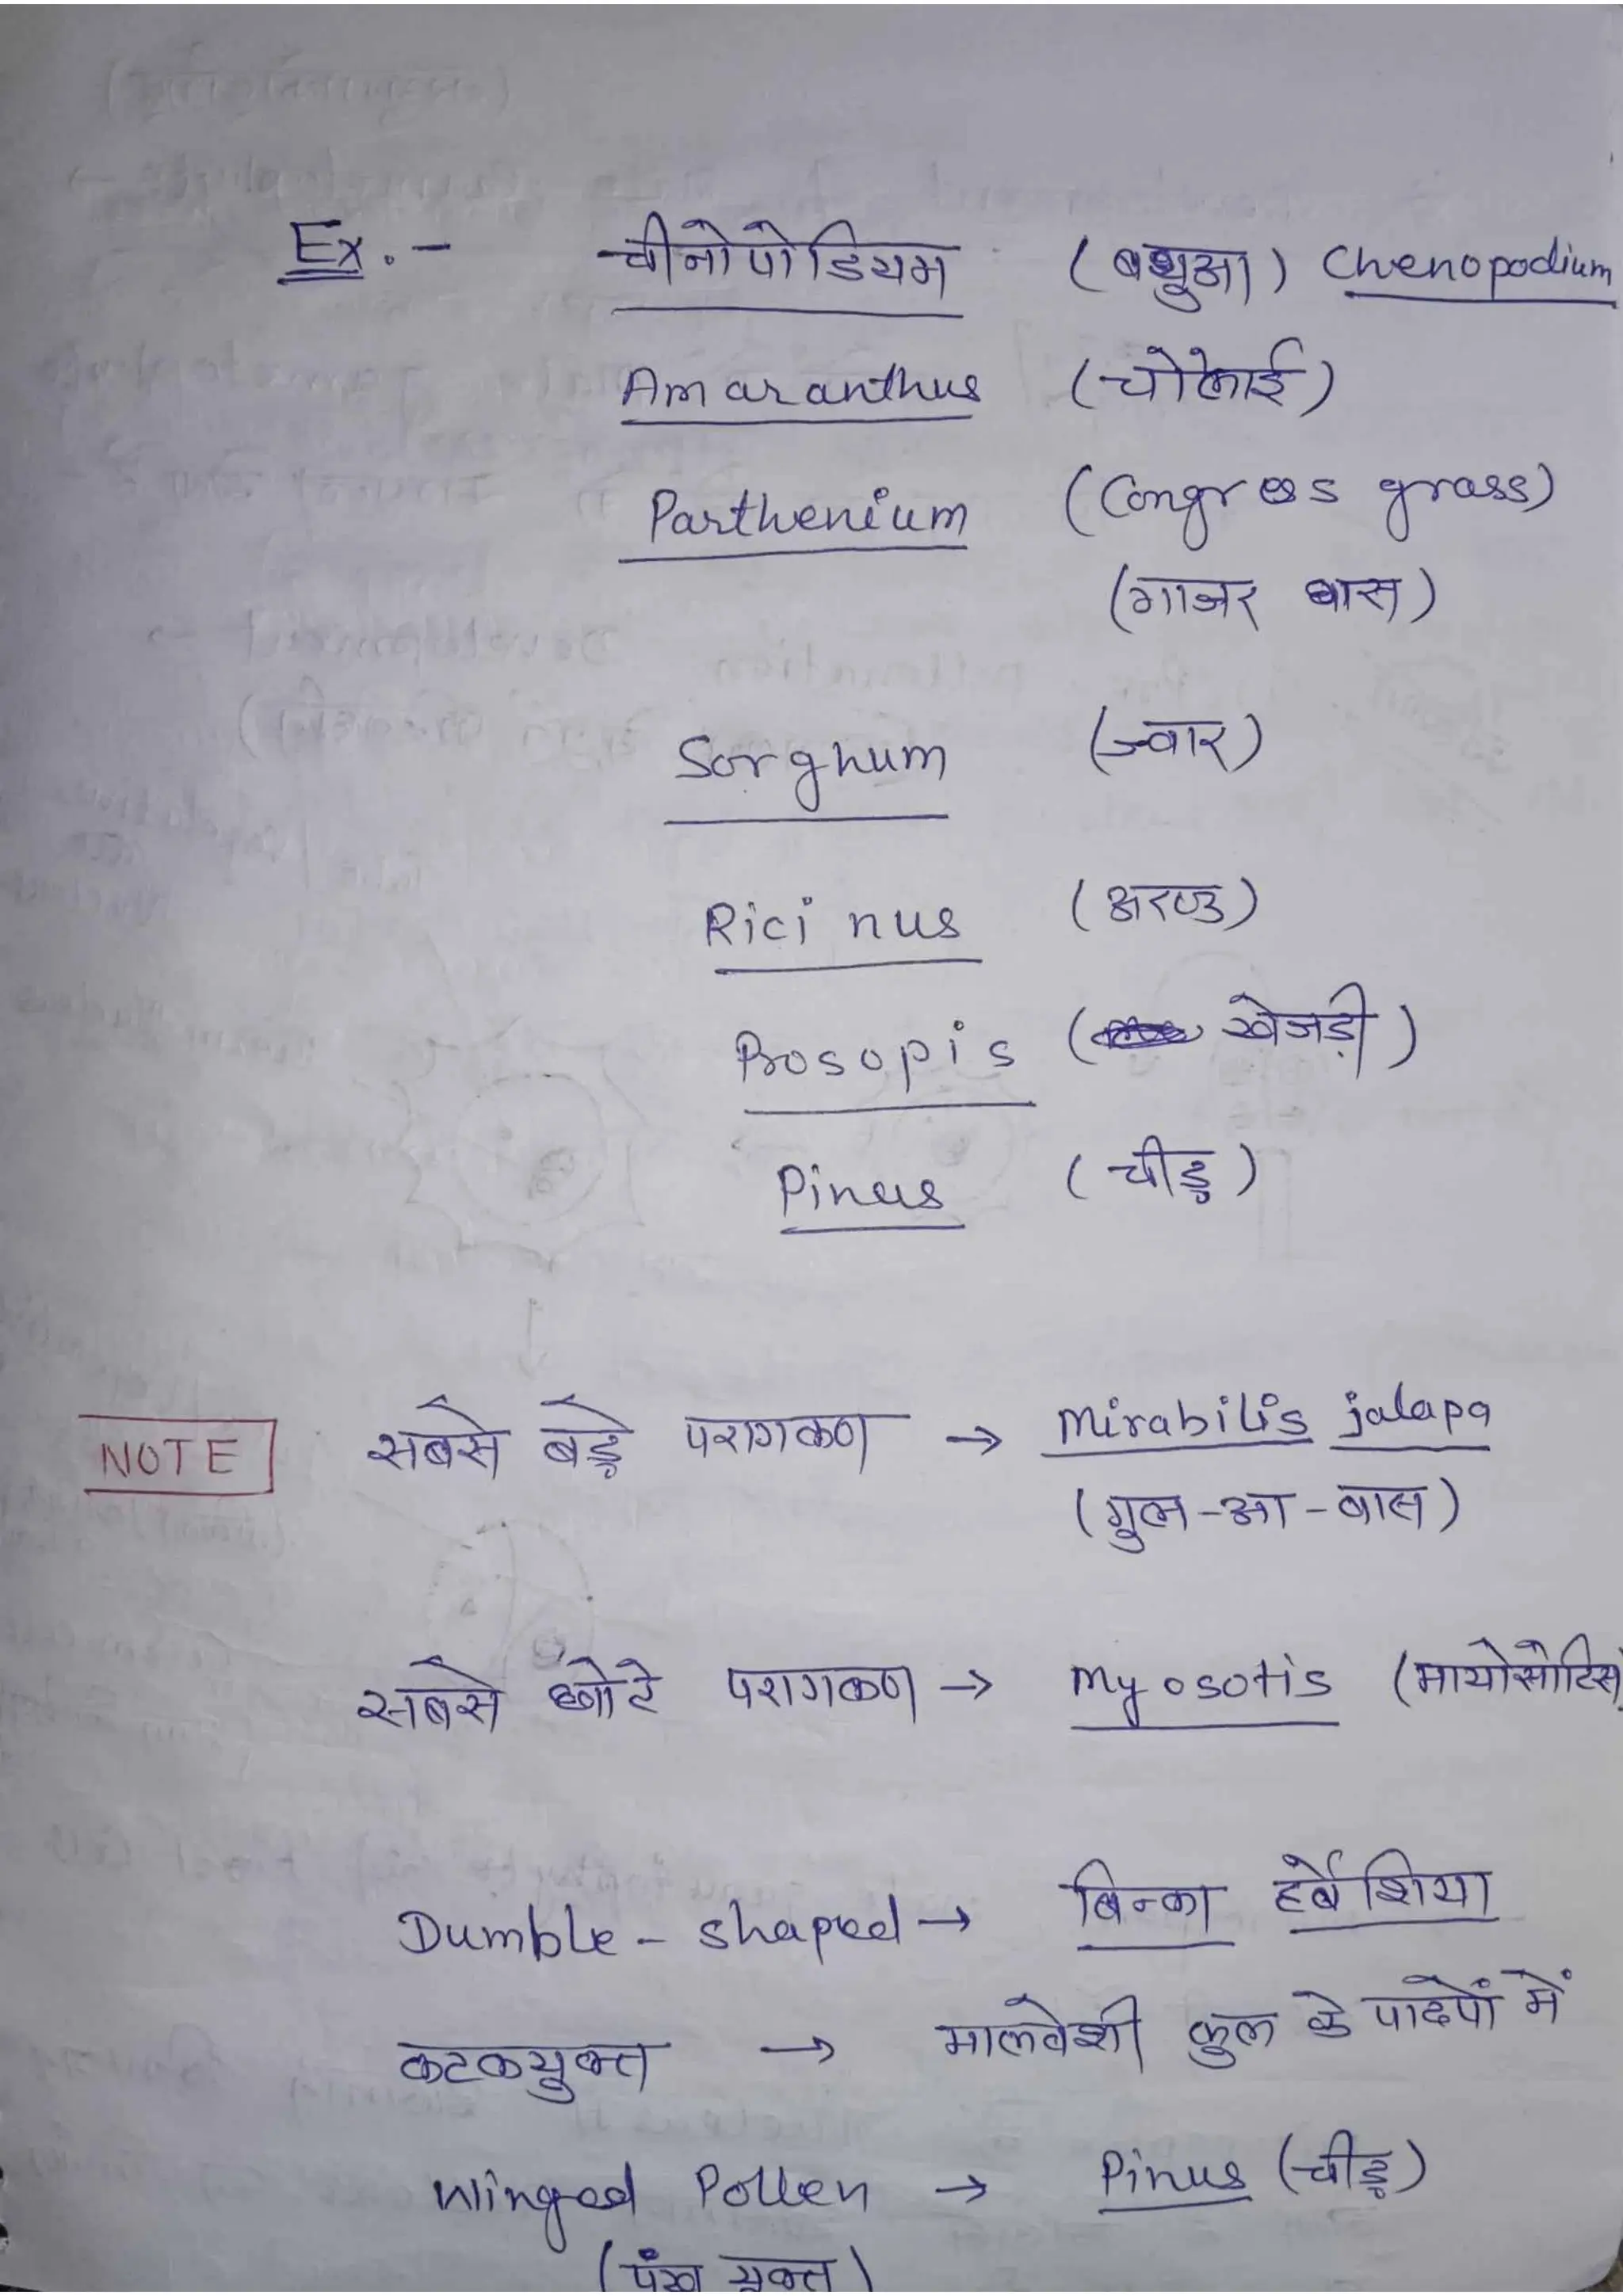 Ex.- चीनोपोडियम (बथुआ) Chenopodium
Amaranthus (चोलाई)
Parthenium (Congress grass)
(गाजर घास)
Sorghum (ज्वार)
Ricinus (अरण्ड)
Prosopis (खेजड़ी)
Pinus (चीड़)
NOTE सबसे बड़े परागकण → Mirabilis jalapa
(गुल-आ-बास)
सबसे छोटे परागकण → Myosotis (मायोसोटिस)
Dumble-shaped → बिन्का हर्बेशिया
कटकयुक्त → मालवेशी कुल के पादपों में
Winged Pollen → Pinus (चीड़)
(पंख युक्त)